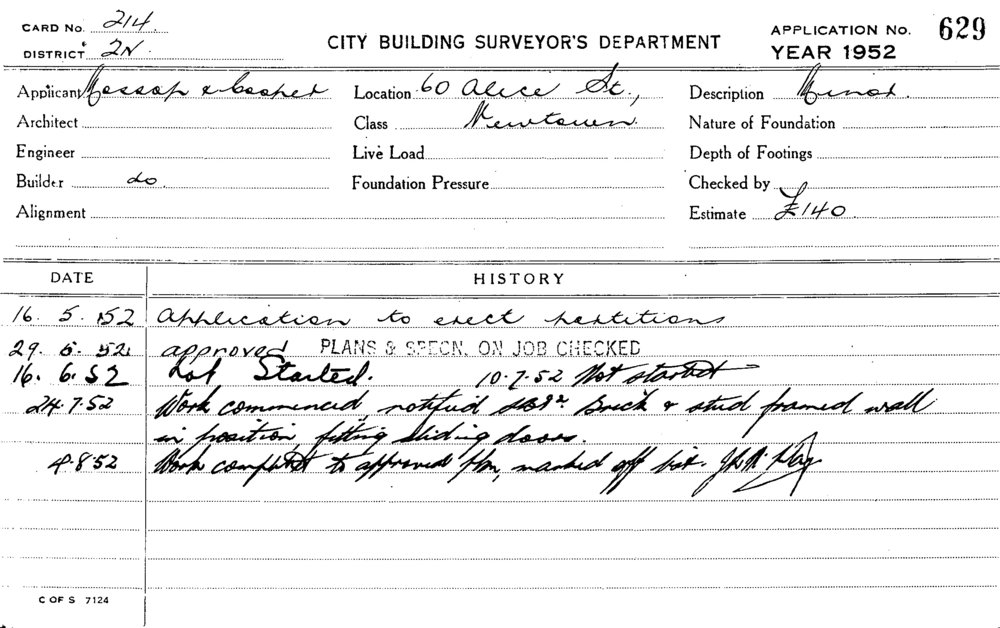 CARD No. 214.
DISTRICT 2N.
CITY BUILDING SURVEYOR'S DEPARTMENT
APPLICATION No. 629
YEAR 1952
Applicant Mossop & Cooper Location 60 Alice St., Description Minor.
Architect Class Newtown. Nature of Foundation
Engineer Live Load Depth of Footings
Builder do Foundation Pressure Checked by
Alignment Estimate £140
DATE HISTORY
16. 5. 52 Application to erect partitions
29. 5. 52 approved PLANS & SPECN. ON JOB CHECKED
16. 6. 52 Not Started. 10.7.52 Not started
24.7.52 Work commenced, notified Brick & stud framed wall
in position, fitting sliding doors.
4.8.52 Work completed to approved pln, marked off list.
C OF S 7124